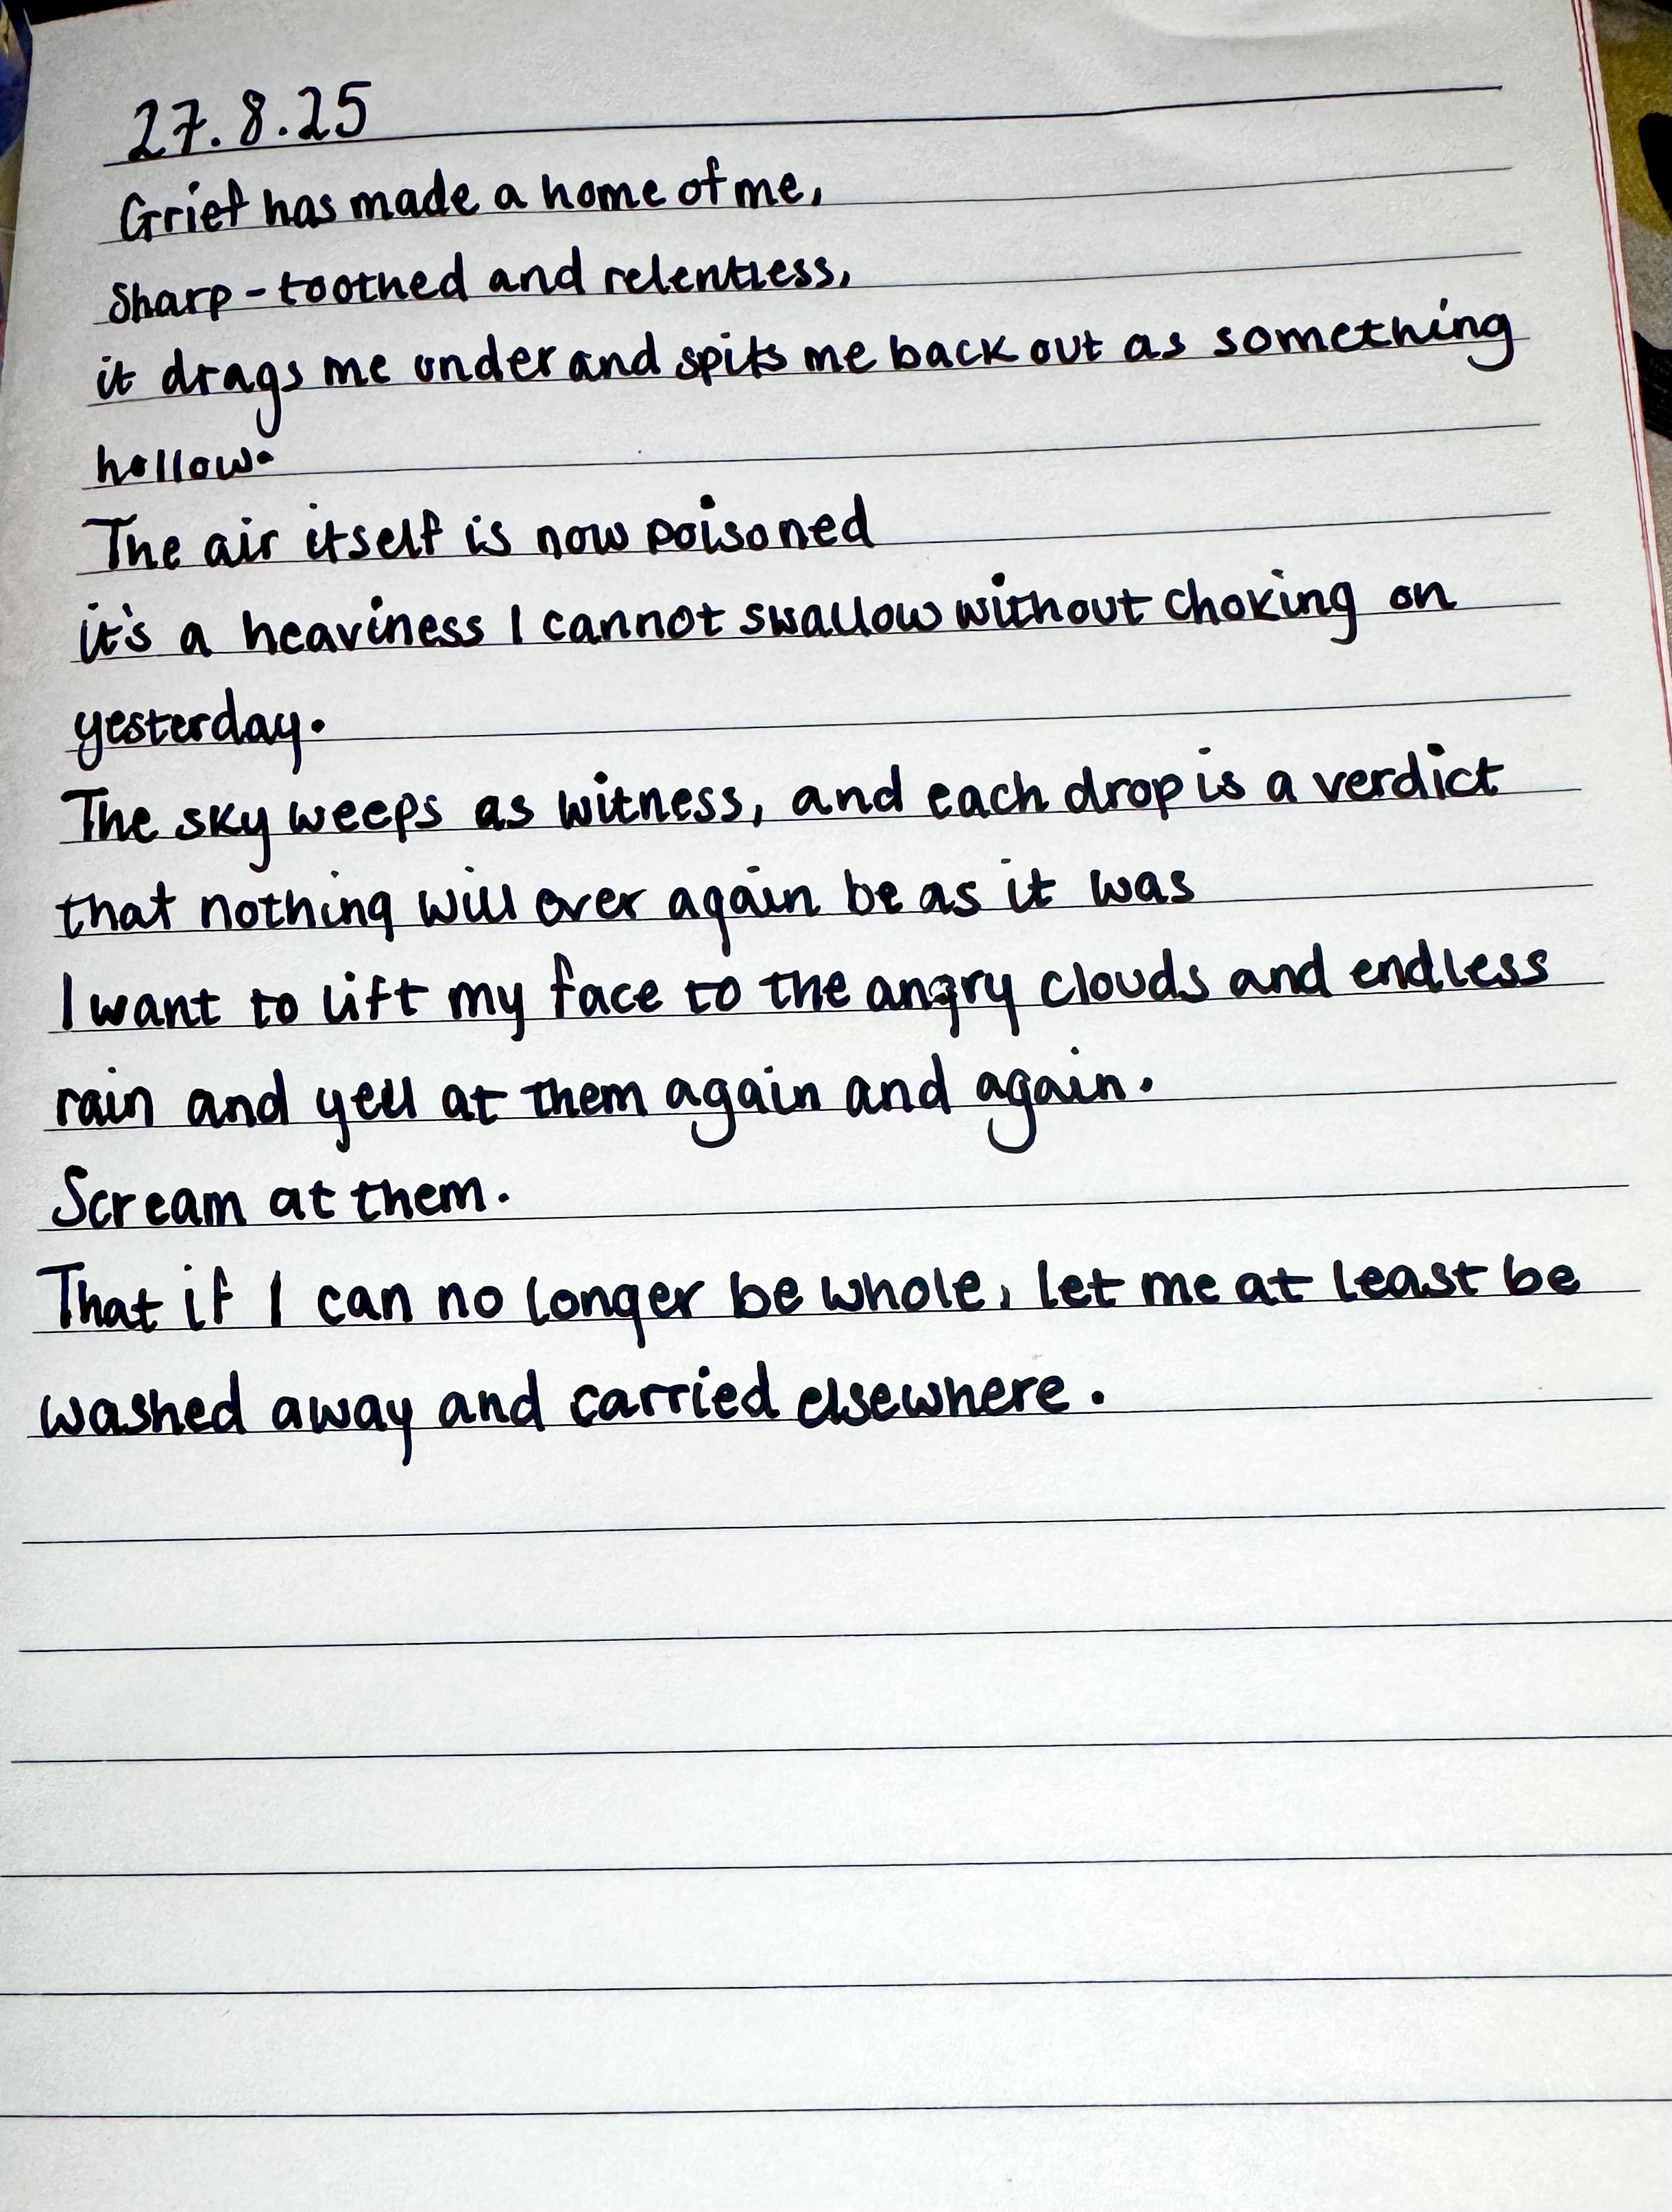 27.8.25
Grief has made a home of me,
Sharp-toothed and relentless,
it drags me under and spits me back out as something
hollow.
The air itself is now poisoned
it's a heaviness I cannot swallow without choking on
yesterday.
The sky weeps as witness, and each drop is a verdict
that nothing will ever again be as it was
I want to lift my face to the angry clouds and endless
rain and yell at them again and again.
Scream at them.
That if I can no longer be whole, let me at least be
washed away and carried elsewhere.